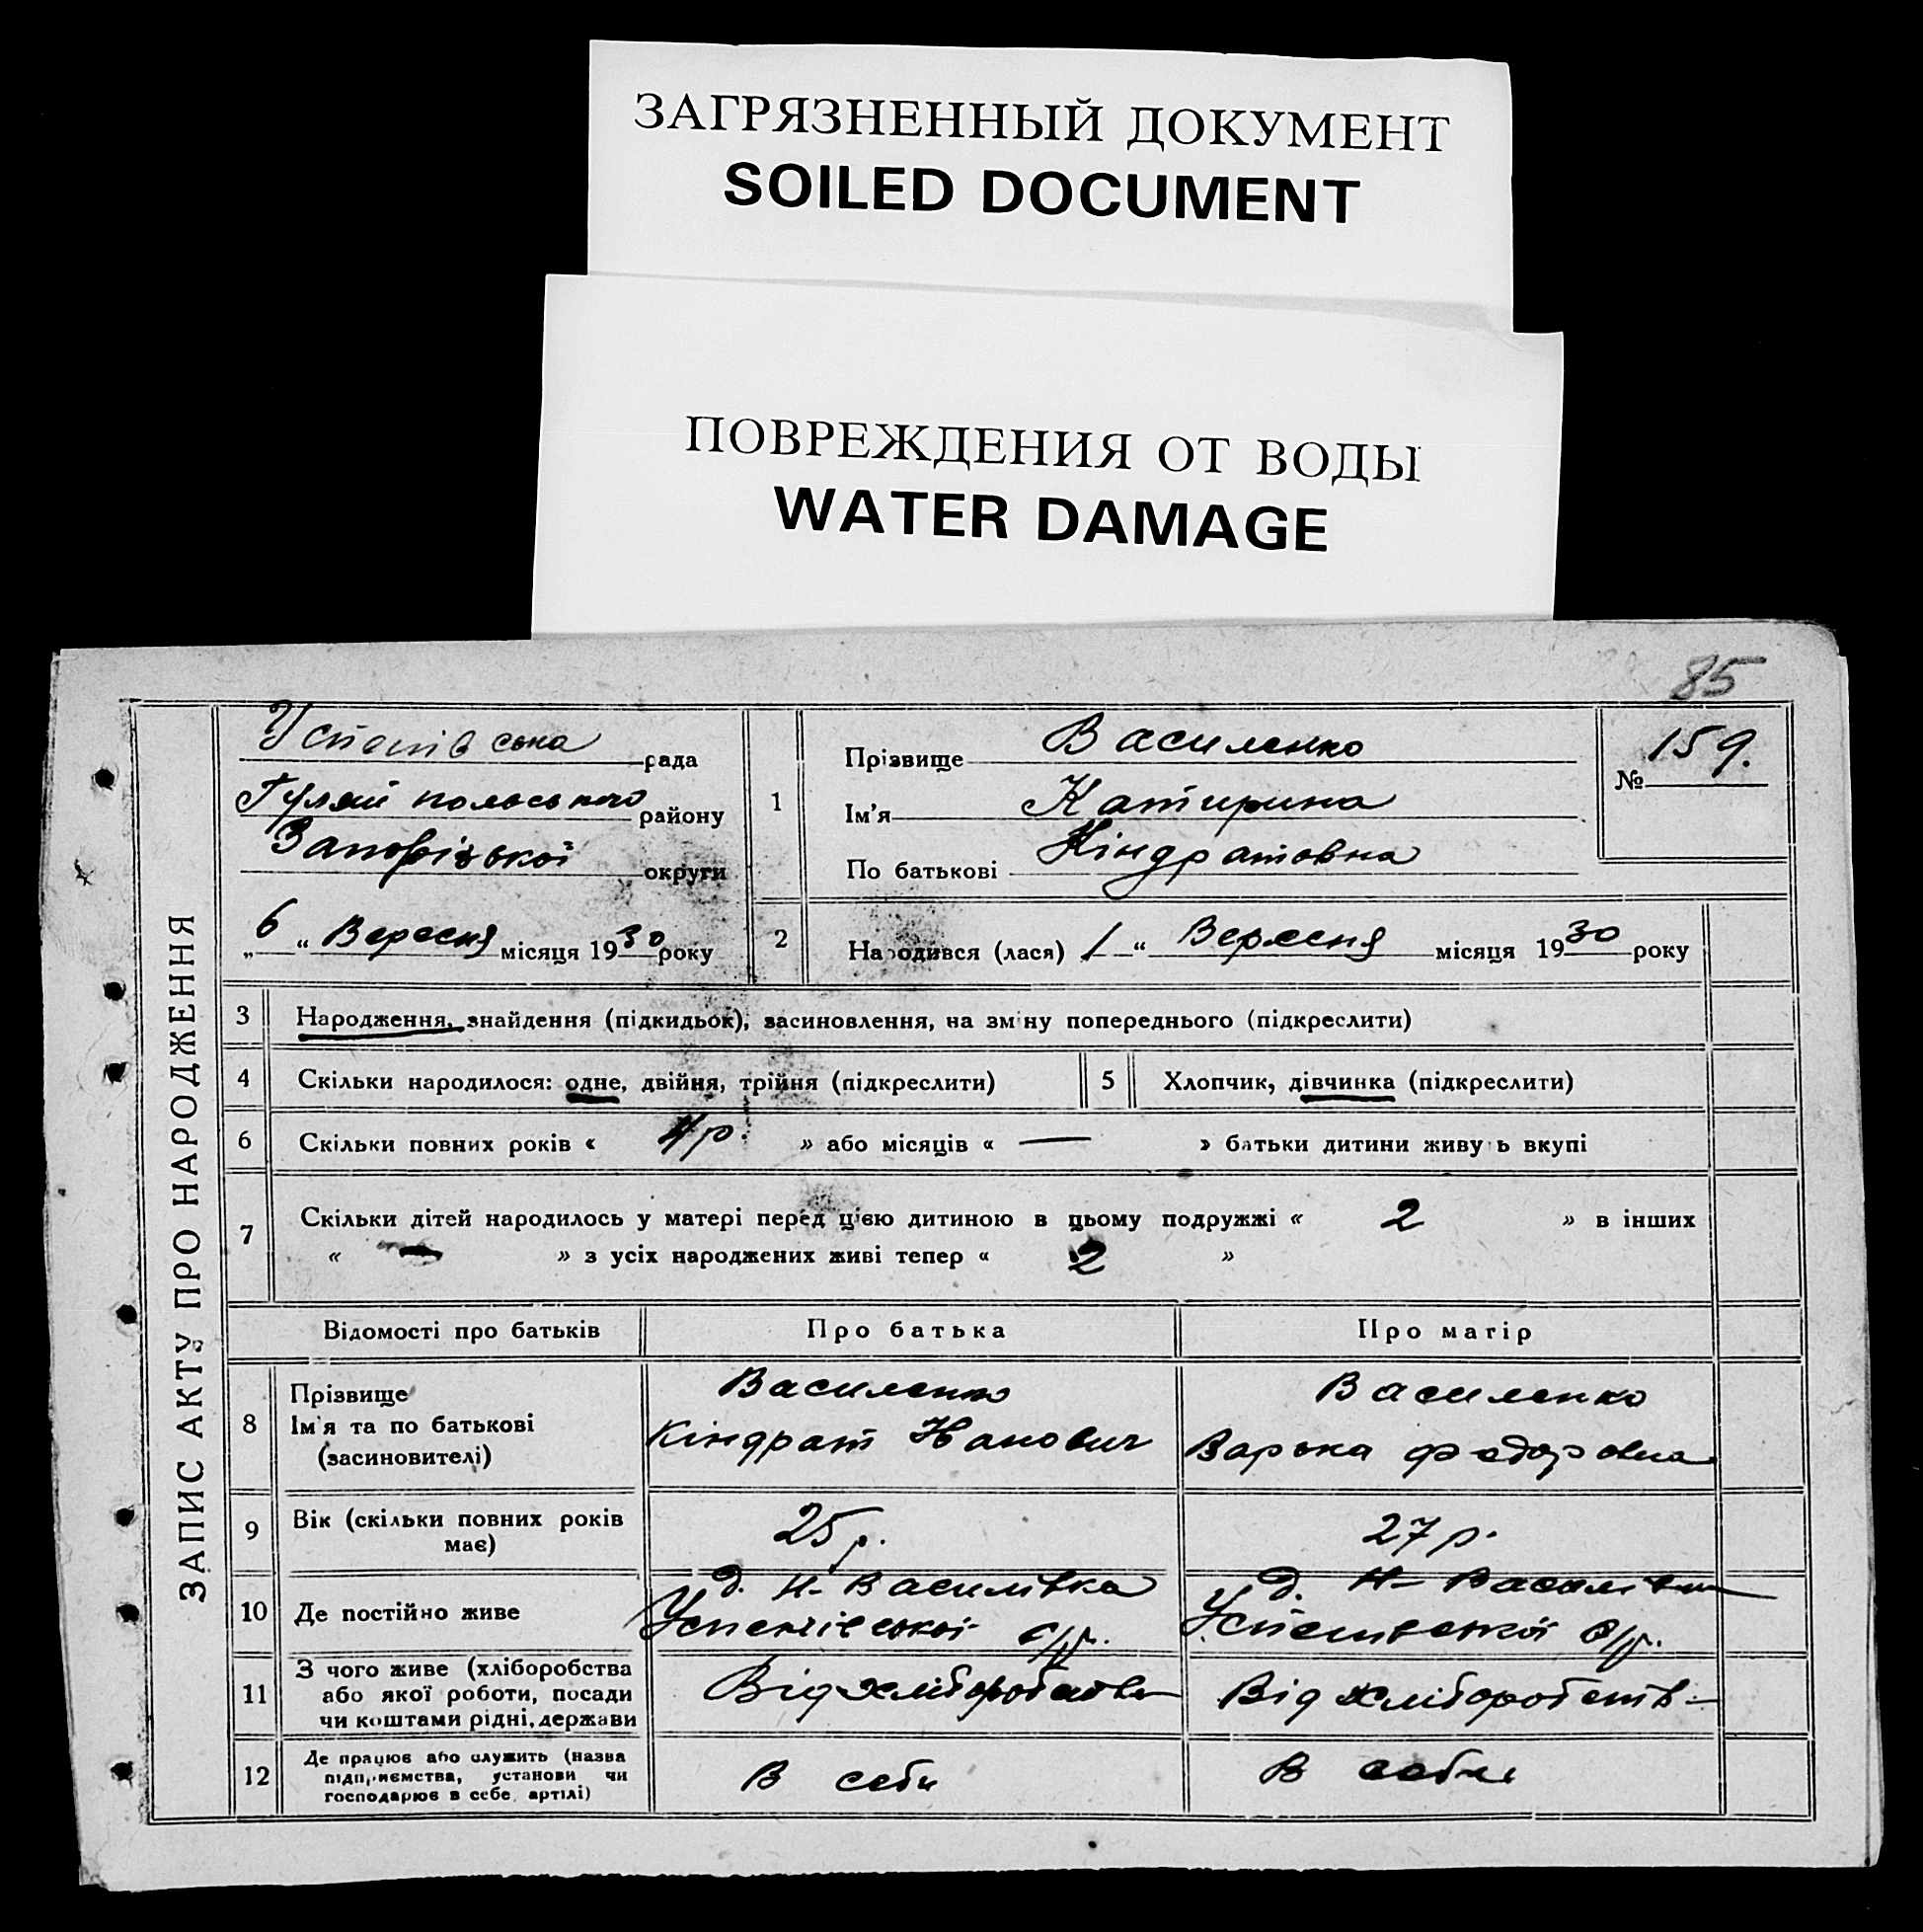 ЗАГРЯЗНЕННЫЙ ДОКУМЕНТ
SOILED DOCUMENT
ПОВРЕЖДЕНИЯ ОТ ВОДЫ
WATER DAMAGE
85
ЗАПИС АКТУ ПРО НАРОДЖЕННЯ
Успенівська рада
Гуляйпольського району
Запорізької округи
„6“ Вересня місяця 1930 року
1
Прізвище Василенко
Ім'я Катирина
По батькові Кіндратовна
№ 159.
2 Народився (лася) 1 “ Вересня місяця 1930 року
3 Народження, знайдення (підкидьок), засиновлення, на зміну попереднього (підкреслити)
4 Скільки народилося: одне, двійня, трійня (підкреслити) 5 Хлопчик, дівчинка (підкреслити)
6 Скільки повних років « 4 р. » або місяців « — » батьки дитини живуть вкупі
7 Скільки дітей народилось у матері перед цією дитиною в цьому подружжі « 2 » в інших
« — » з усіх народжених живі тепер « 2 »
Відомості про батьків Про батька Про матір
8 Прізвище
Ім'я та по батькові
(засиновителі)
Василенко
Кіндрат Иванович
Василенко
Варька Федоровна
9 Вік (скільки повних років
має)
25 р.
27 р.
10 Де постійно живе
д. Н-Василівка
Успенівської с/р.
д. Н-Василівка
Успенівської с/р.
11 З чого живе (хліборобства
або якої роботи, посади
чи коштами рідні, держави
Від хліборобства
Від хліборобств
12 Де працює або служить (назва
підприємства, установи чи
господарює в себе, артілі)
В себи
В себи